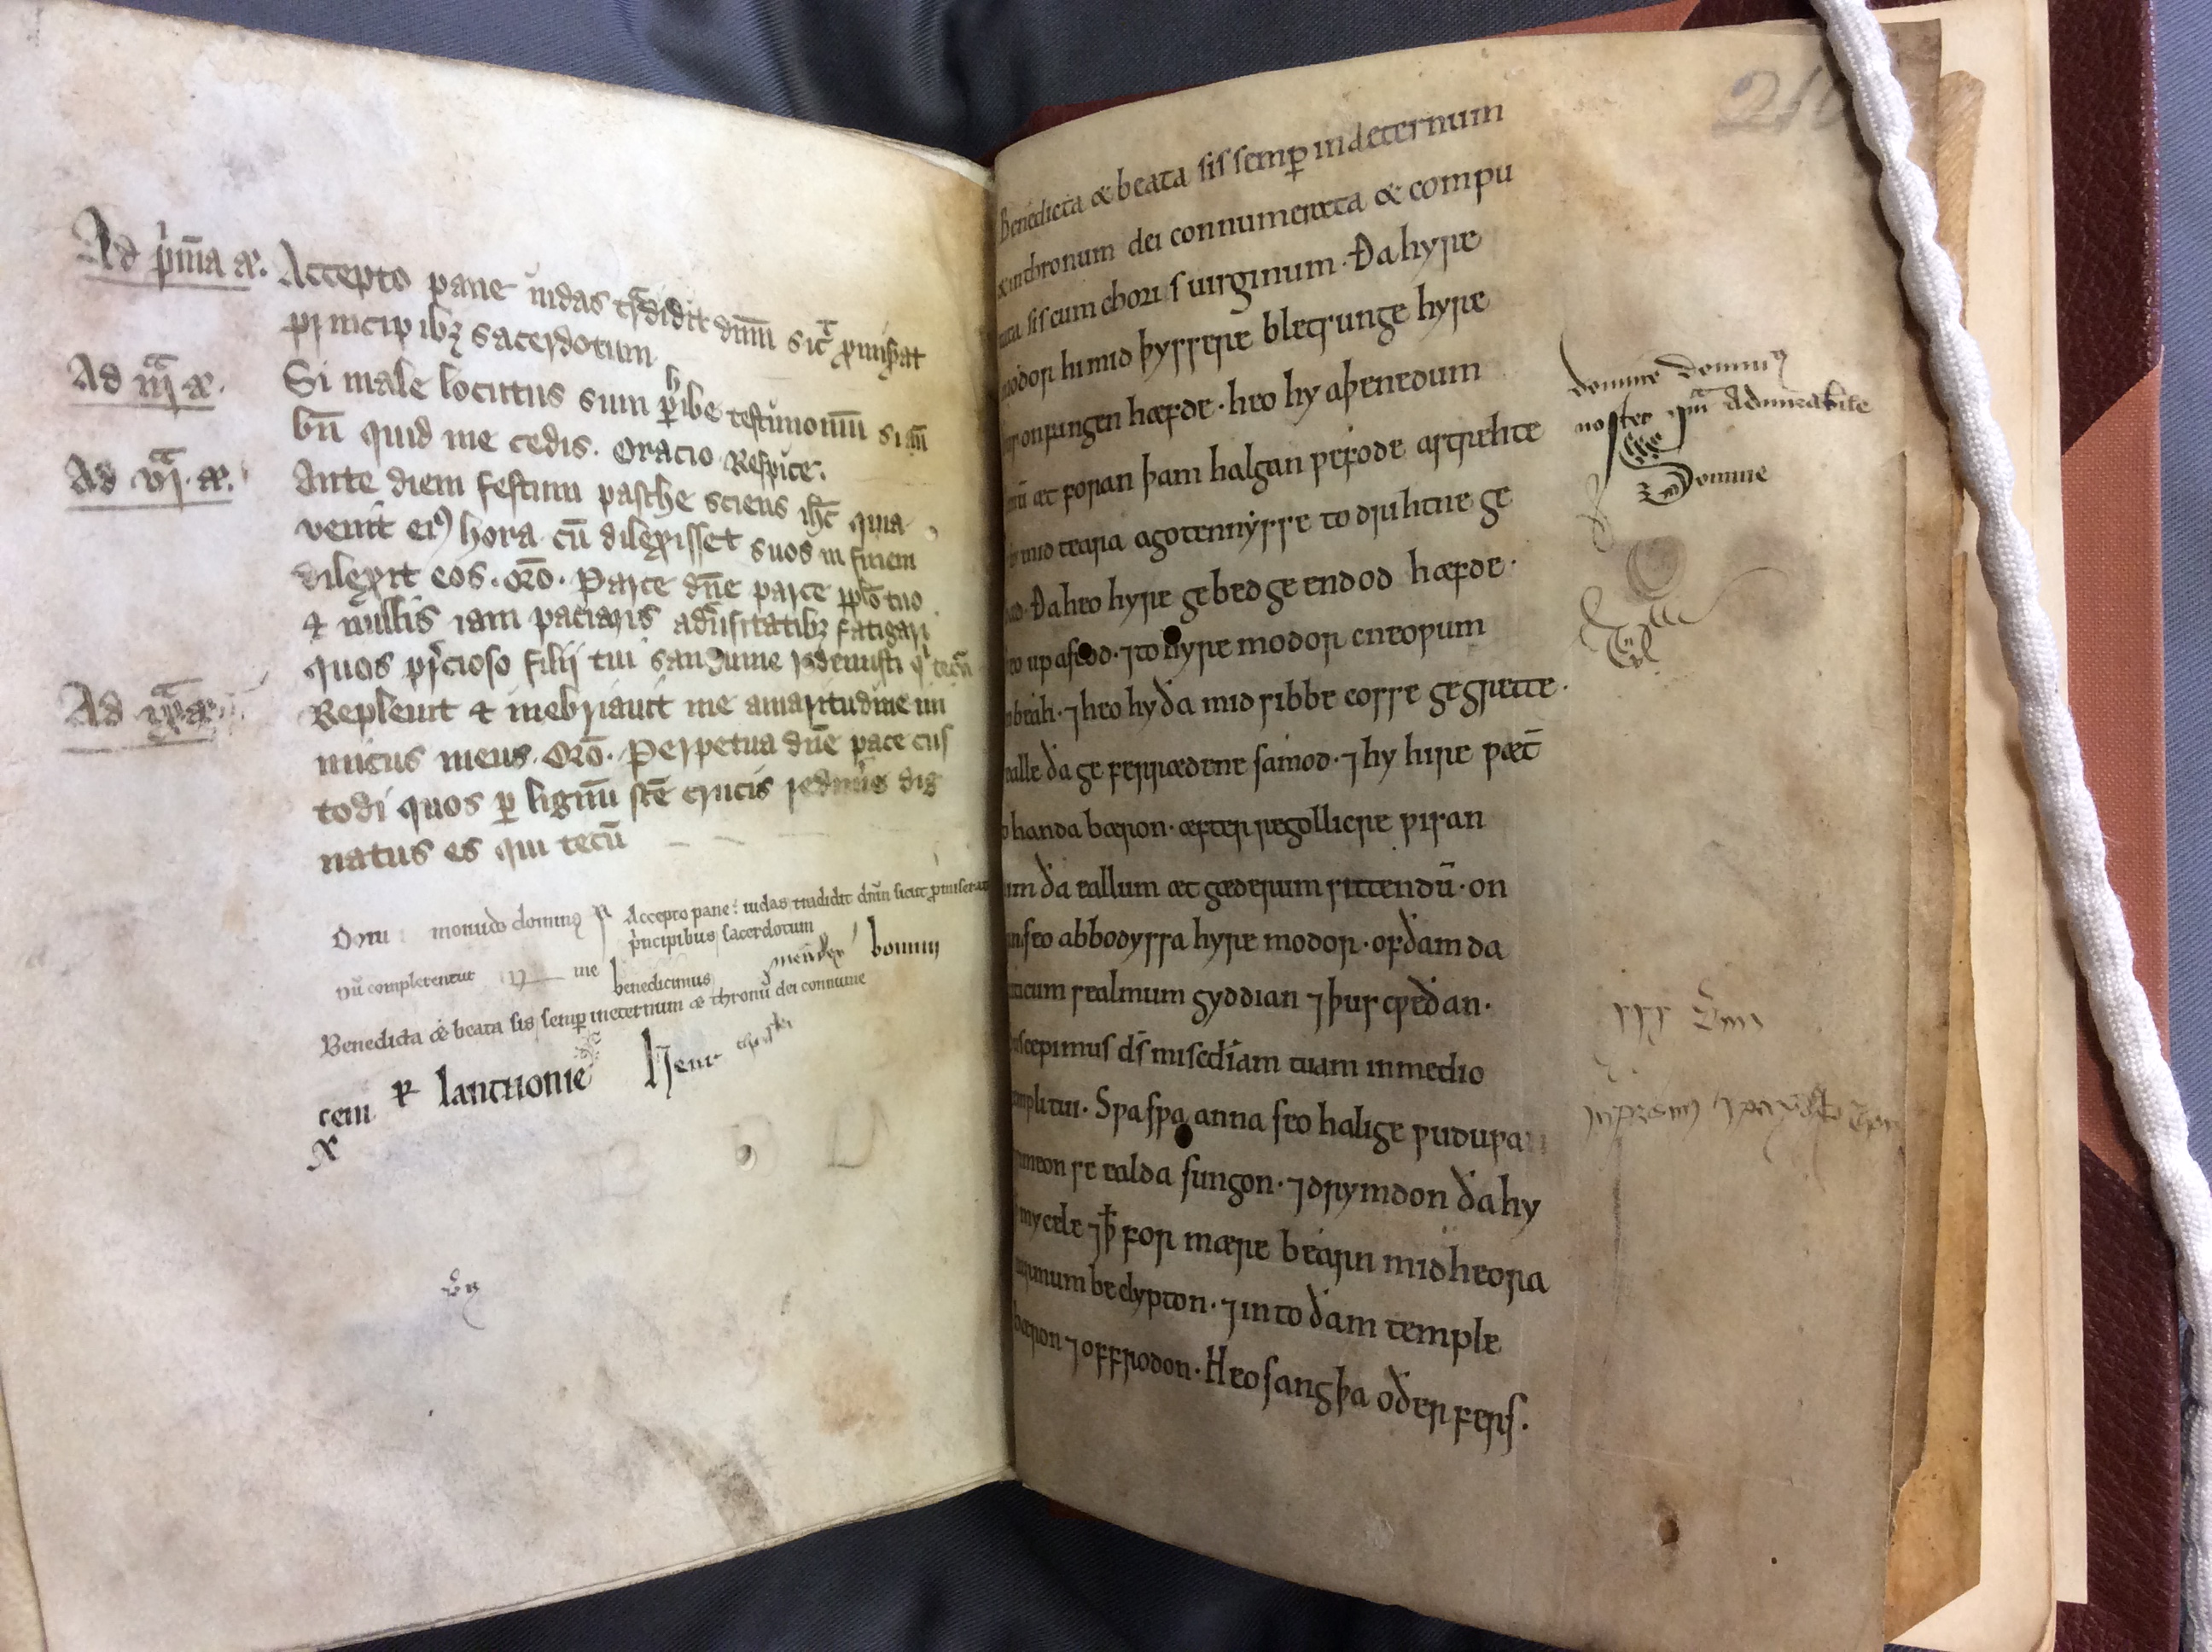 Ad p̄ma ꝫ. Accepto pane iudas tradidit dnm̄ sic̄ ꝓmiserat
principibꝫ sacerdotum
Ad iij ꝫ. Si male locutus sum ꝑhibe testimoniū si aūt
bn̄ quid me cedis. Oracio Respice.
Ad vj. ꝫ. Ante diem festum pasche sciens ihc̄ quia
venit eiꝰ hora cū dilexisset suos in finem
dilexit eos. Oro. Parce dn̄e parce pplo tuo
⁊ nullis iam paciaris aduersitatibꝫ fatigari
quos p̄cioso filij tui sanguine redemisti q̇ tecū
Ad ix ꝫ. Repleuit ⁊ inebriauit me amaritudine ini
micus meus. Oro. Perpetua dn̄e pace cus
todi quos ꝑ lignū sc̄e crucis redim̄e dig
natus es qui tecū
monudo dominꝰ Accepto pane: iudas tradidit dn̄m sicut ꝓmiserat
principibus sacerdotum
complerentur me benedicimus bonum
Benedicta & beata sis semꝑ ineternum & thronū dei connume
cem lantuonie
210
Benedicta & beata sis semꝑ indeternum
& inthronum dei connumerata & compu
tata sis cum choris uirginum. Ða hyre
modor hi mid þyssere bletsunge hyre
onfangen hæfde. heo hy aþenedum
æt foran þam halgan ƿefode astrehte
mid teara agotennysse to drihtne ge
bæd. Ða heo hyre gebed ge endod hæfde.
heo up astod. ⁊ to hyre modor cneoƿum
onbeah. ⁊ heo hy ða mid sibbe cosse gegrette.
ealle ða ge ferrædene samod. ⁊ hy hire ƿæt̄
handa bæron. æfter regollicre ƿisan
him ða eallum æt gæderum sittendū. on
seo abbodyssa hyre modor. of ðam da
uiticum sealmum gyddian ⁊ þus cƿeðan.
Suscepimus ds̄ mis̄cdiam tuam inmedio
templi tui. Sƿa sƿa anna seo halige ƿuduƿa
simeon se ealda sungon. ⁊ drymdon ða hy
mycele ⁊ ꝥ for mære bearn mid heora
earmum beclypton. ⁊ in to ðam temple
bæron ⁊ offrodon. Heo sang þa oðer fers.
domine dominꝰ
noster qm̄ admirabile
Domine